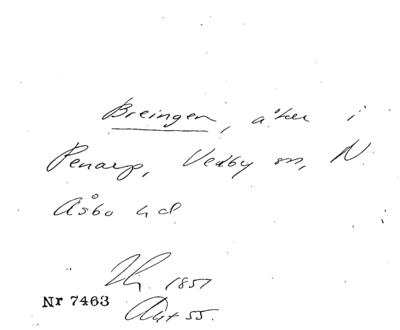 Breingen, åker i
Penarp, Vedby sn, N.
Åsbo hd
1851
Nr 7463
Akt 55.